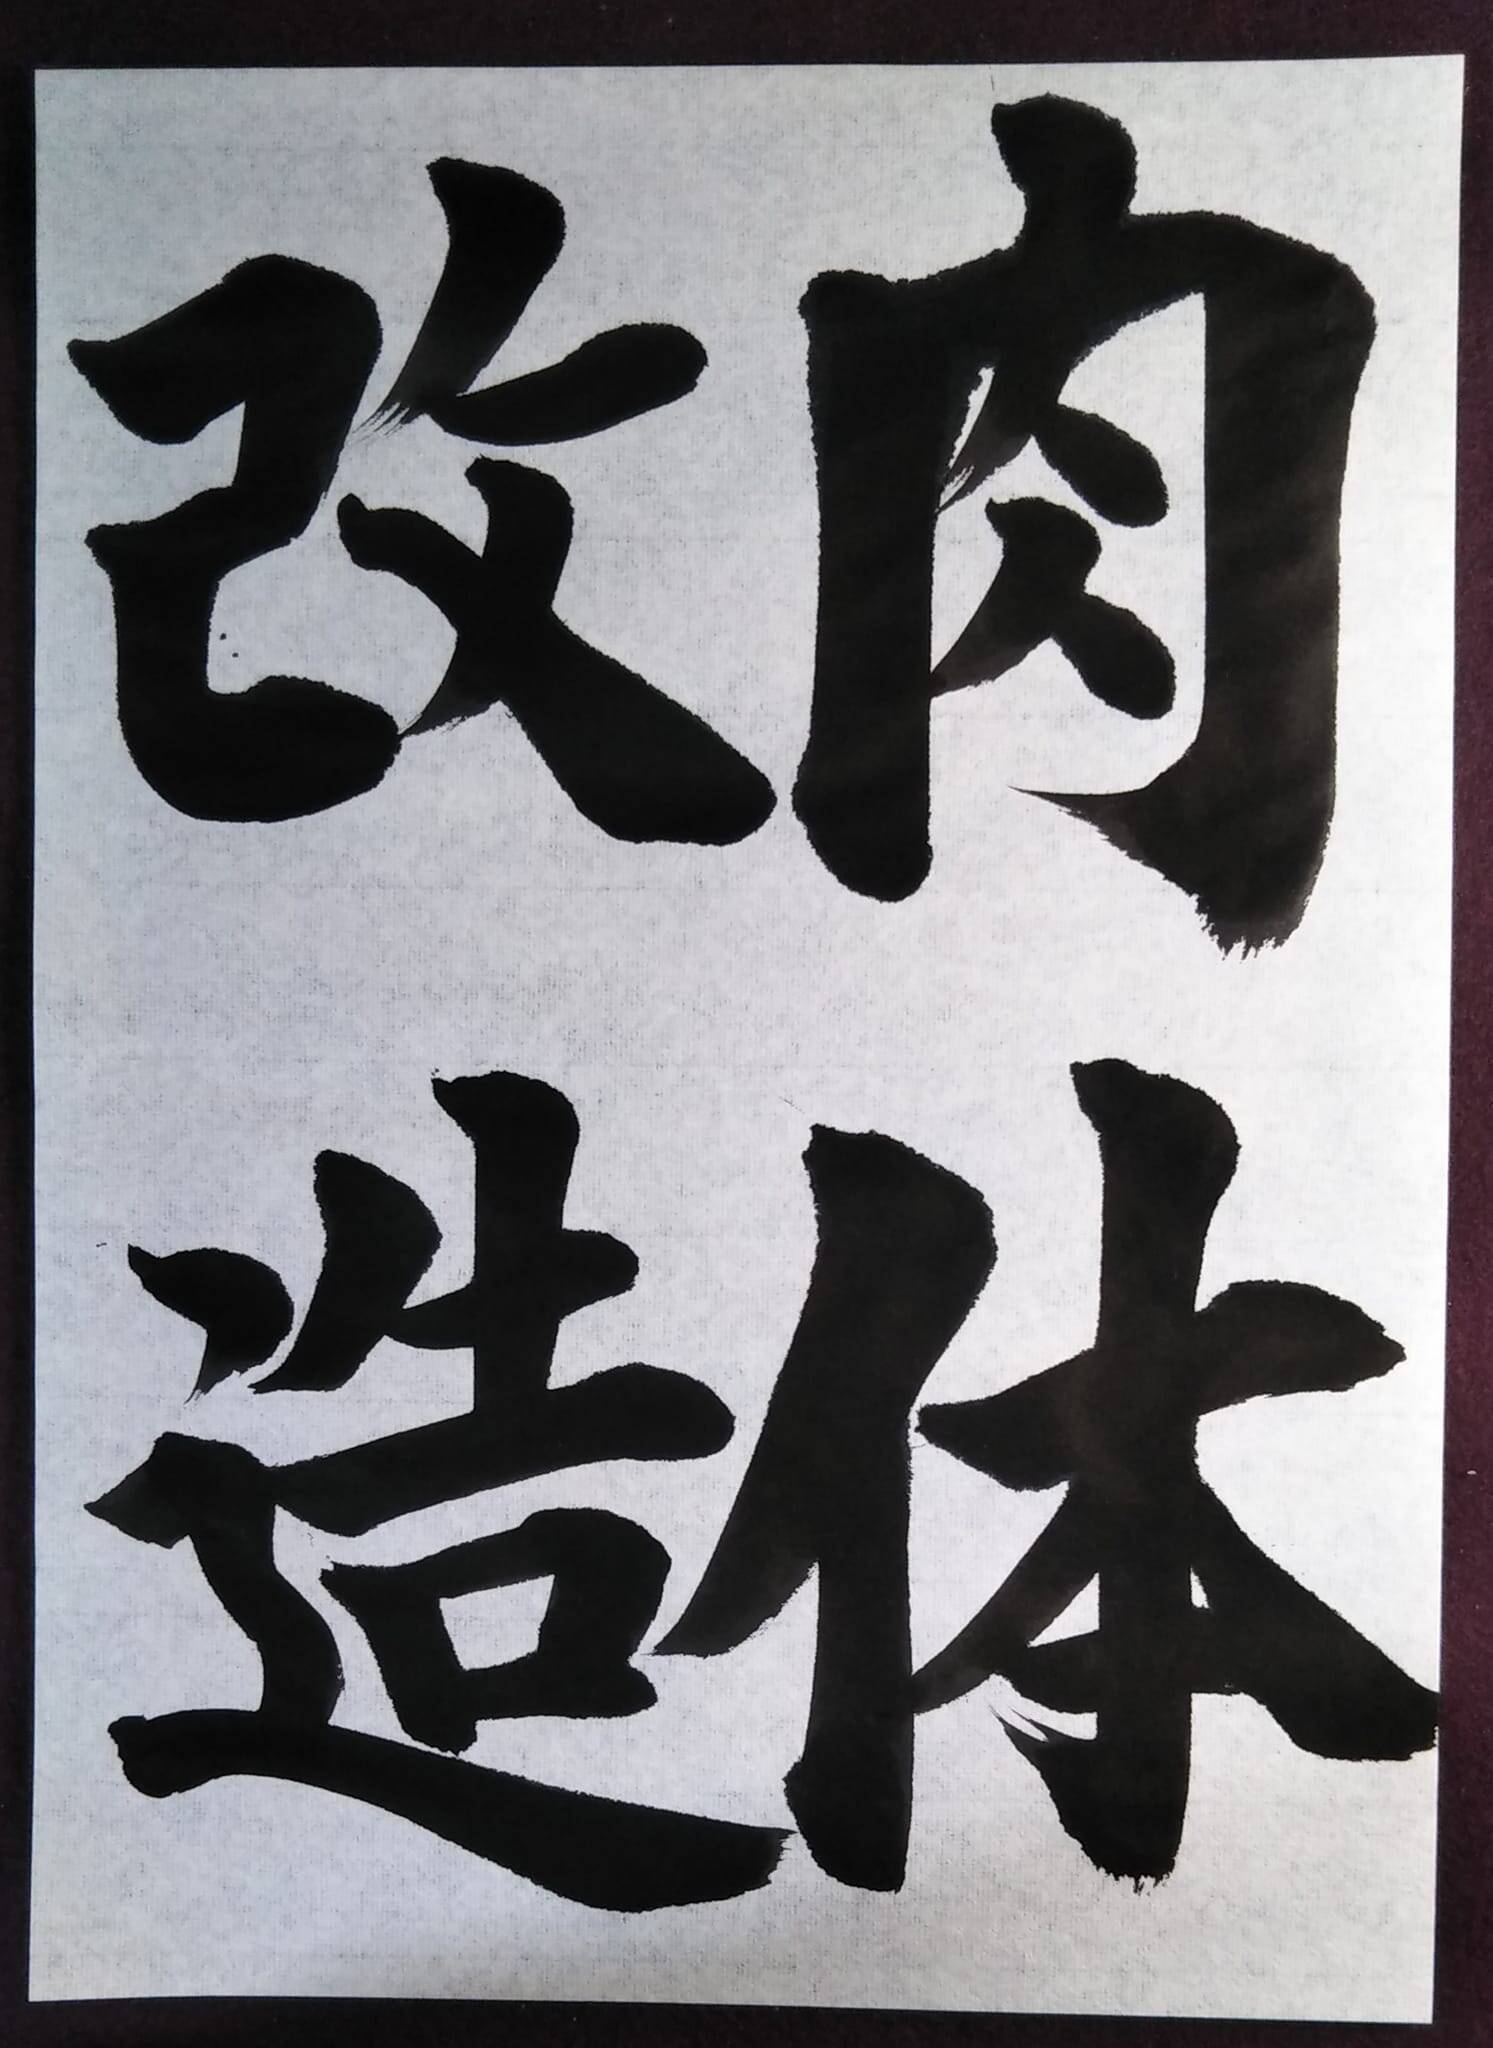 肉体
改造